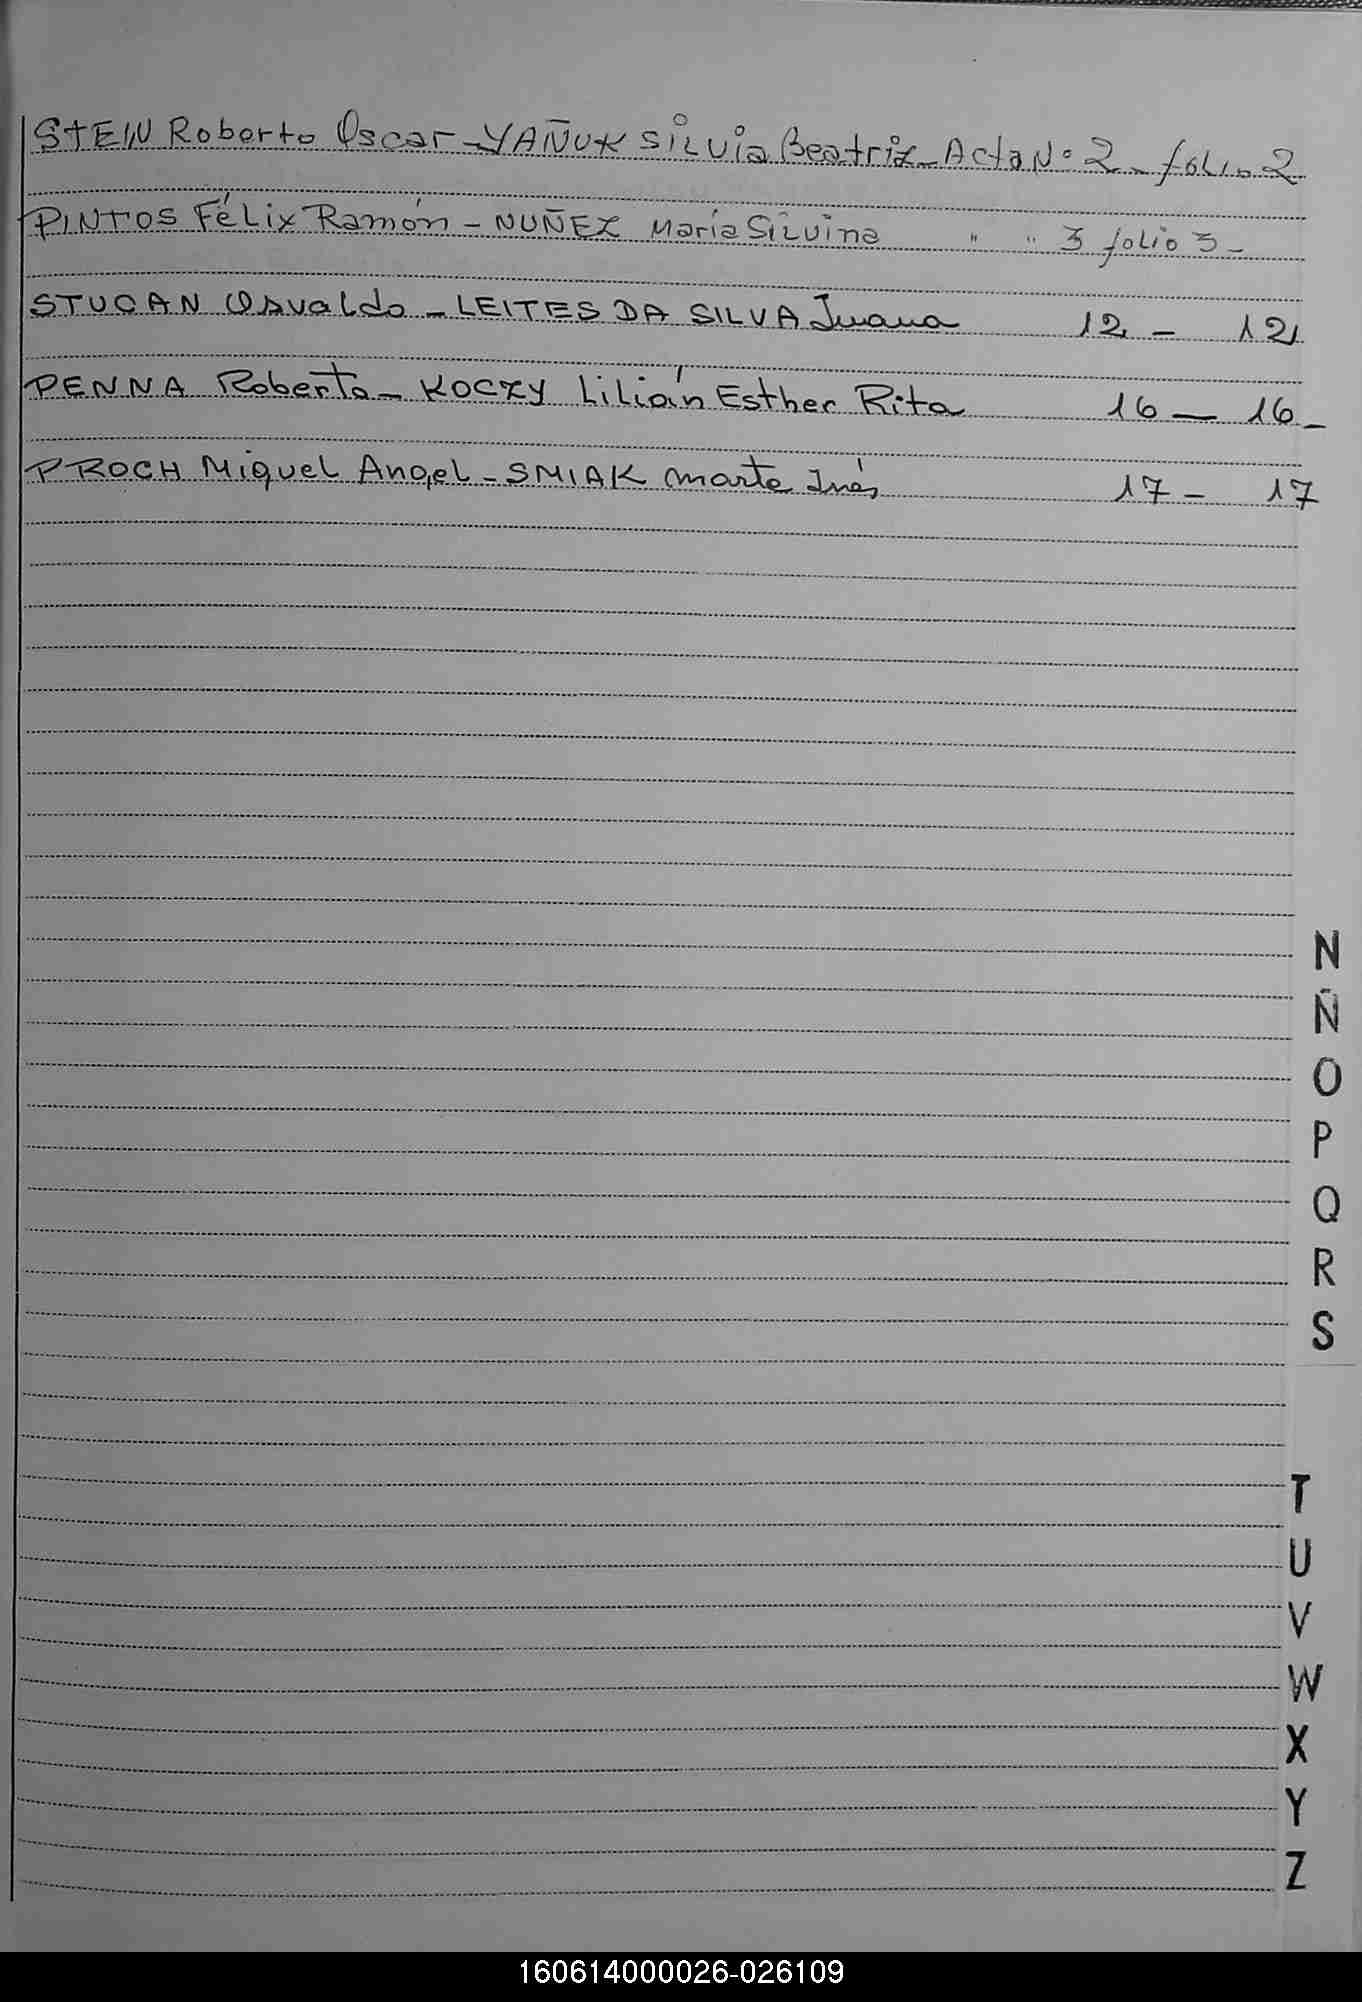 STEIN Roberto Oscar - YAÑUK Silvia Beatriz - Acta Nº 2 - folio 2
PINTOS Félix Ramón - NUÑEZ María Silvina " " 3 folio 3 -
STUCAN Osvaldo - LEITES DA SILVA Juana 12 - 12
PENNA Roberto - KOCZY Lilián Esther Rita 16 - 16 -
PROCH Miguel Angel - SMIAK Marta Inés 17 - 17
N
Ñ
O
P
Q
R
S
T
U
V
W
X
Y
Z
160614000026-026109